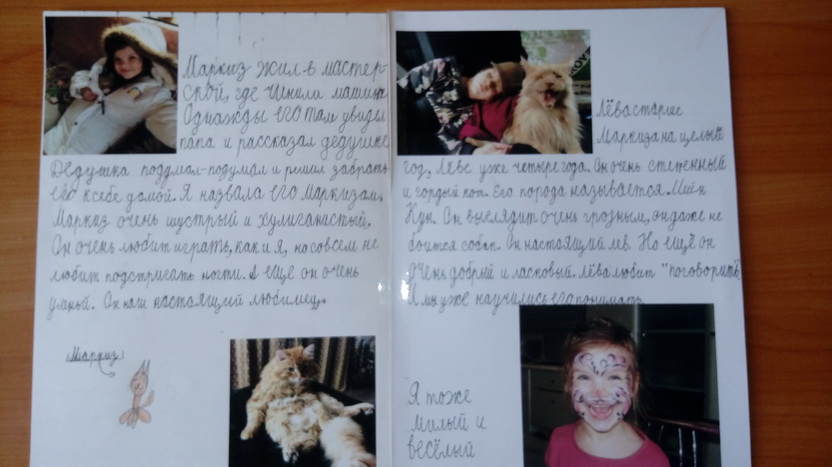 Маркиз жил в мастер-
ской, где чинили машины.
Однажды его там увидел
папа и рассказал дедушке
Дедушка подумал-подумал и решил забрать
его к себе домой. Я назвала его Маркизом.
Маркиз очень шустрый и хулиганистый.
Он очень любит играть, как и я, но совсем не
любит подстригать ногти. А ещё он очень
умный. Он наш настоящий любимец.
Маркиз
Лёва старше
Маркиза на целый
год, Лёве уже четыре года. Он очень степенный
и гордый кот. Его порода называется Мейн
Кун. Он выглядит очень грозным, он даже не
боится собак. Он настоящий лев. Но ещё он
очень добрый и ласковый. Лёва любит "поговорить"
И мы уже научились его понимать
Я тоже
милый и
весёлый